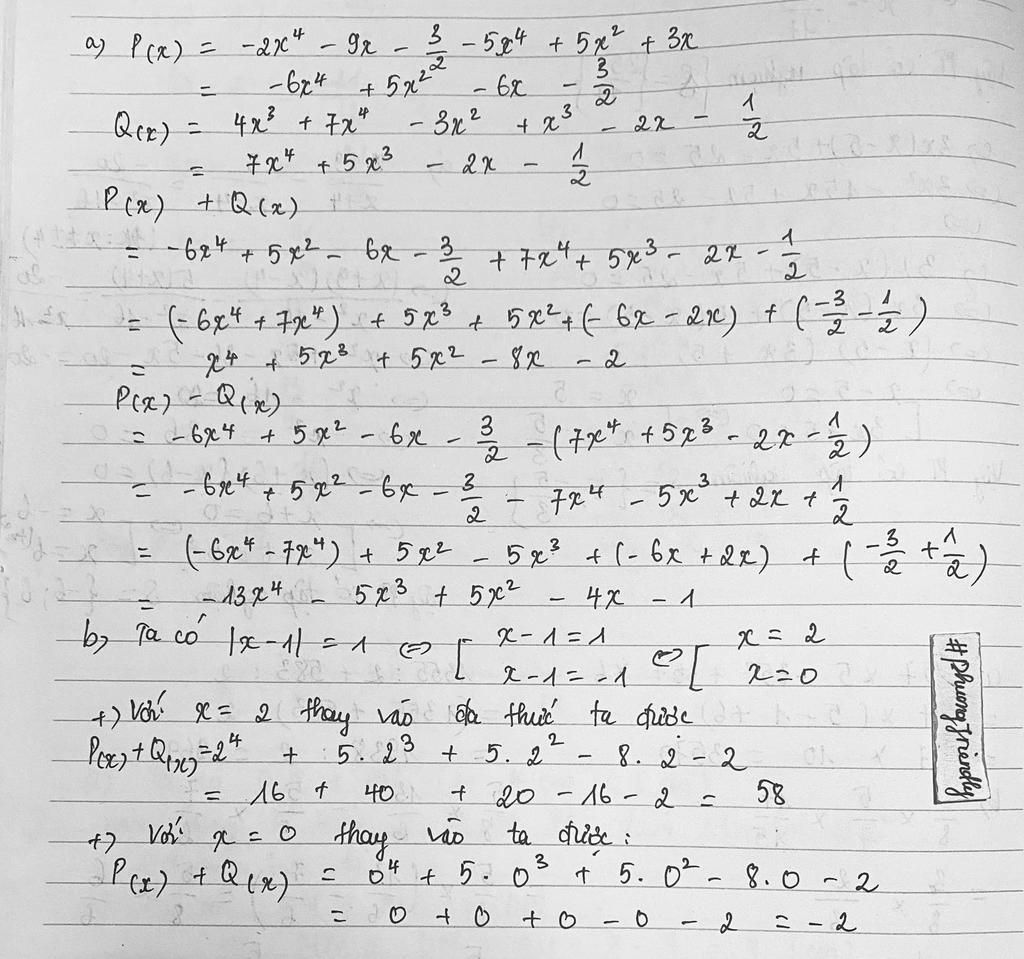 a) P(x) = -2x⁴ - 9x - 3/2 - 5x⁴ + 5x² + 3x
= -6x⁴ + 5x² - 6x - 3/2
Q(x) = 4x³ + 7x⁴ - 3x² + x³ - 2x - 1/2
= 7x⁴ + 5x³ - 2x - 1/2
P(x) + Q(x)
= -6x⁴ + 5x² - 6x - 3/2 + 7x⁴ + 5x³ - 2x - 1/2
= (-6x⁴ + 7x⁴) + 5x³ + 5x² + (-6x - 2x) + (-3/2 - 1/2)
= x⁴ + 5x³ + 5x² - 8x - 2
P(x) - Q(x)
= -6x⁴ + 5x² - 6x - 3/2 - (7x⁴ + 5x³ - 2x - 1/2)
= -6x⁴ + 5x² - 6x - 3/2 - 7x⁴ - 5x³ + 2x + 1/2
= (-6x⁴ - 7x⁴) + 5x² - 5x³ + (-6x + 2x) + (-3/2 + 1/2)
= -13x⁴ - 5x³ + 5x² - 4x - 1
b) Ta có |x-1| = 1 <=> [ x-1 = 1 <=> [ x = 2
x-1 = -1 x = 0
+) Với x = 2 thay vào đa thức ta được
P(x) + Q(x) = 2⁴ + 5.2³ + 5.2² - 8.2 - 2
= 16 + 40 + 20 - 16 - 2 = 58
+) Với x = 0 thay vào ta được:
P(x) + Q(x) = 0⁴ + 5.0³ + 5.0² - 8.0 - 2
= 0 + 0 + 0 - 0 - 2 = -2
#phuongfriendly